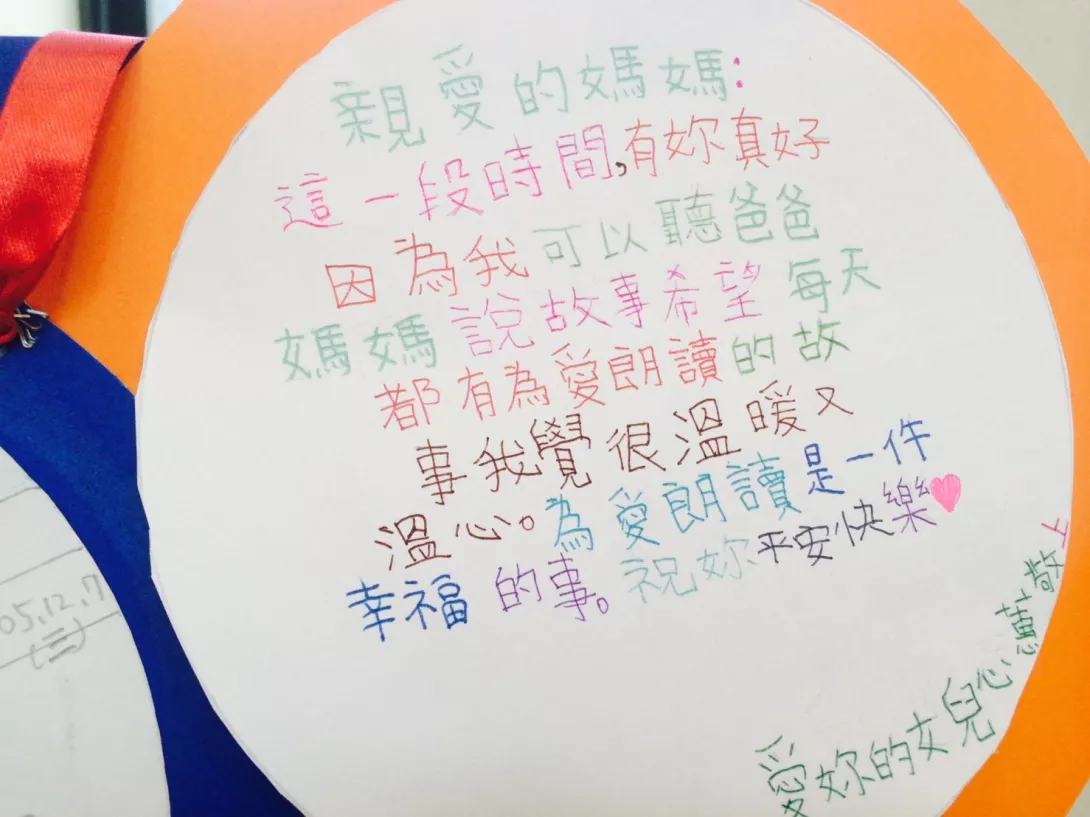 親愛的媽媽:
這一段時間,有妳真好
因為我可以聽爸爸
媽媽說故事希望每天
都有為愛朗讀的故
事我覺很溫暖又
溫心。為愛朗讀是一件
幸福的事。祝妳平安快樂
愛妳的女兒心蕙敬上
05.12.7
(三)